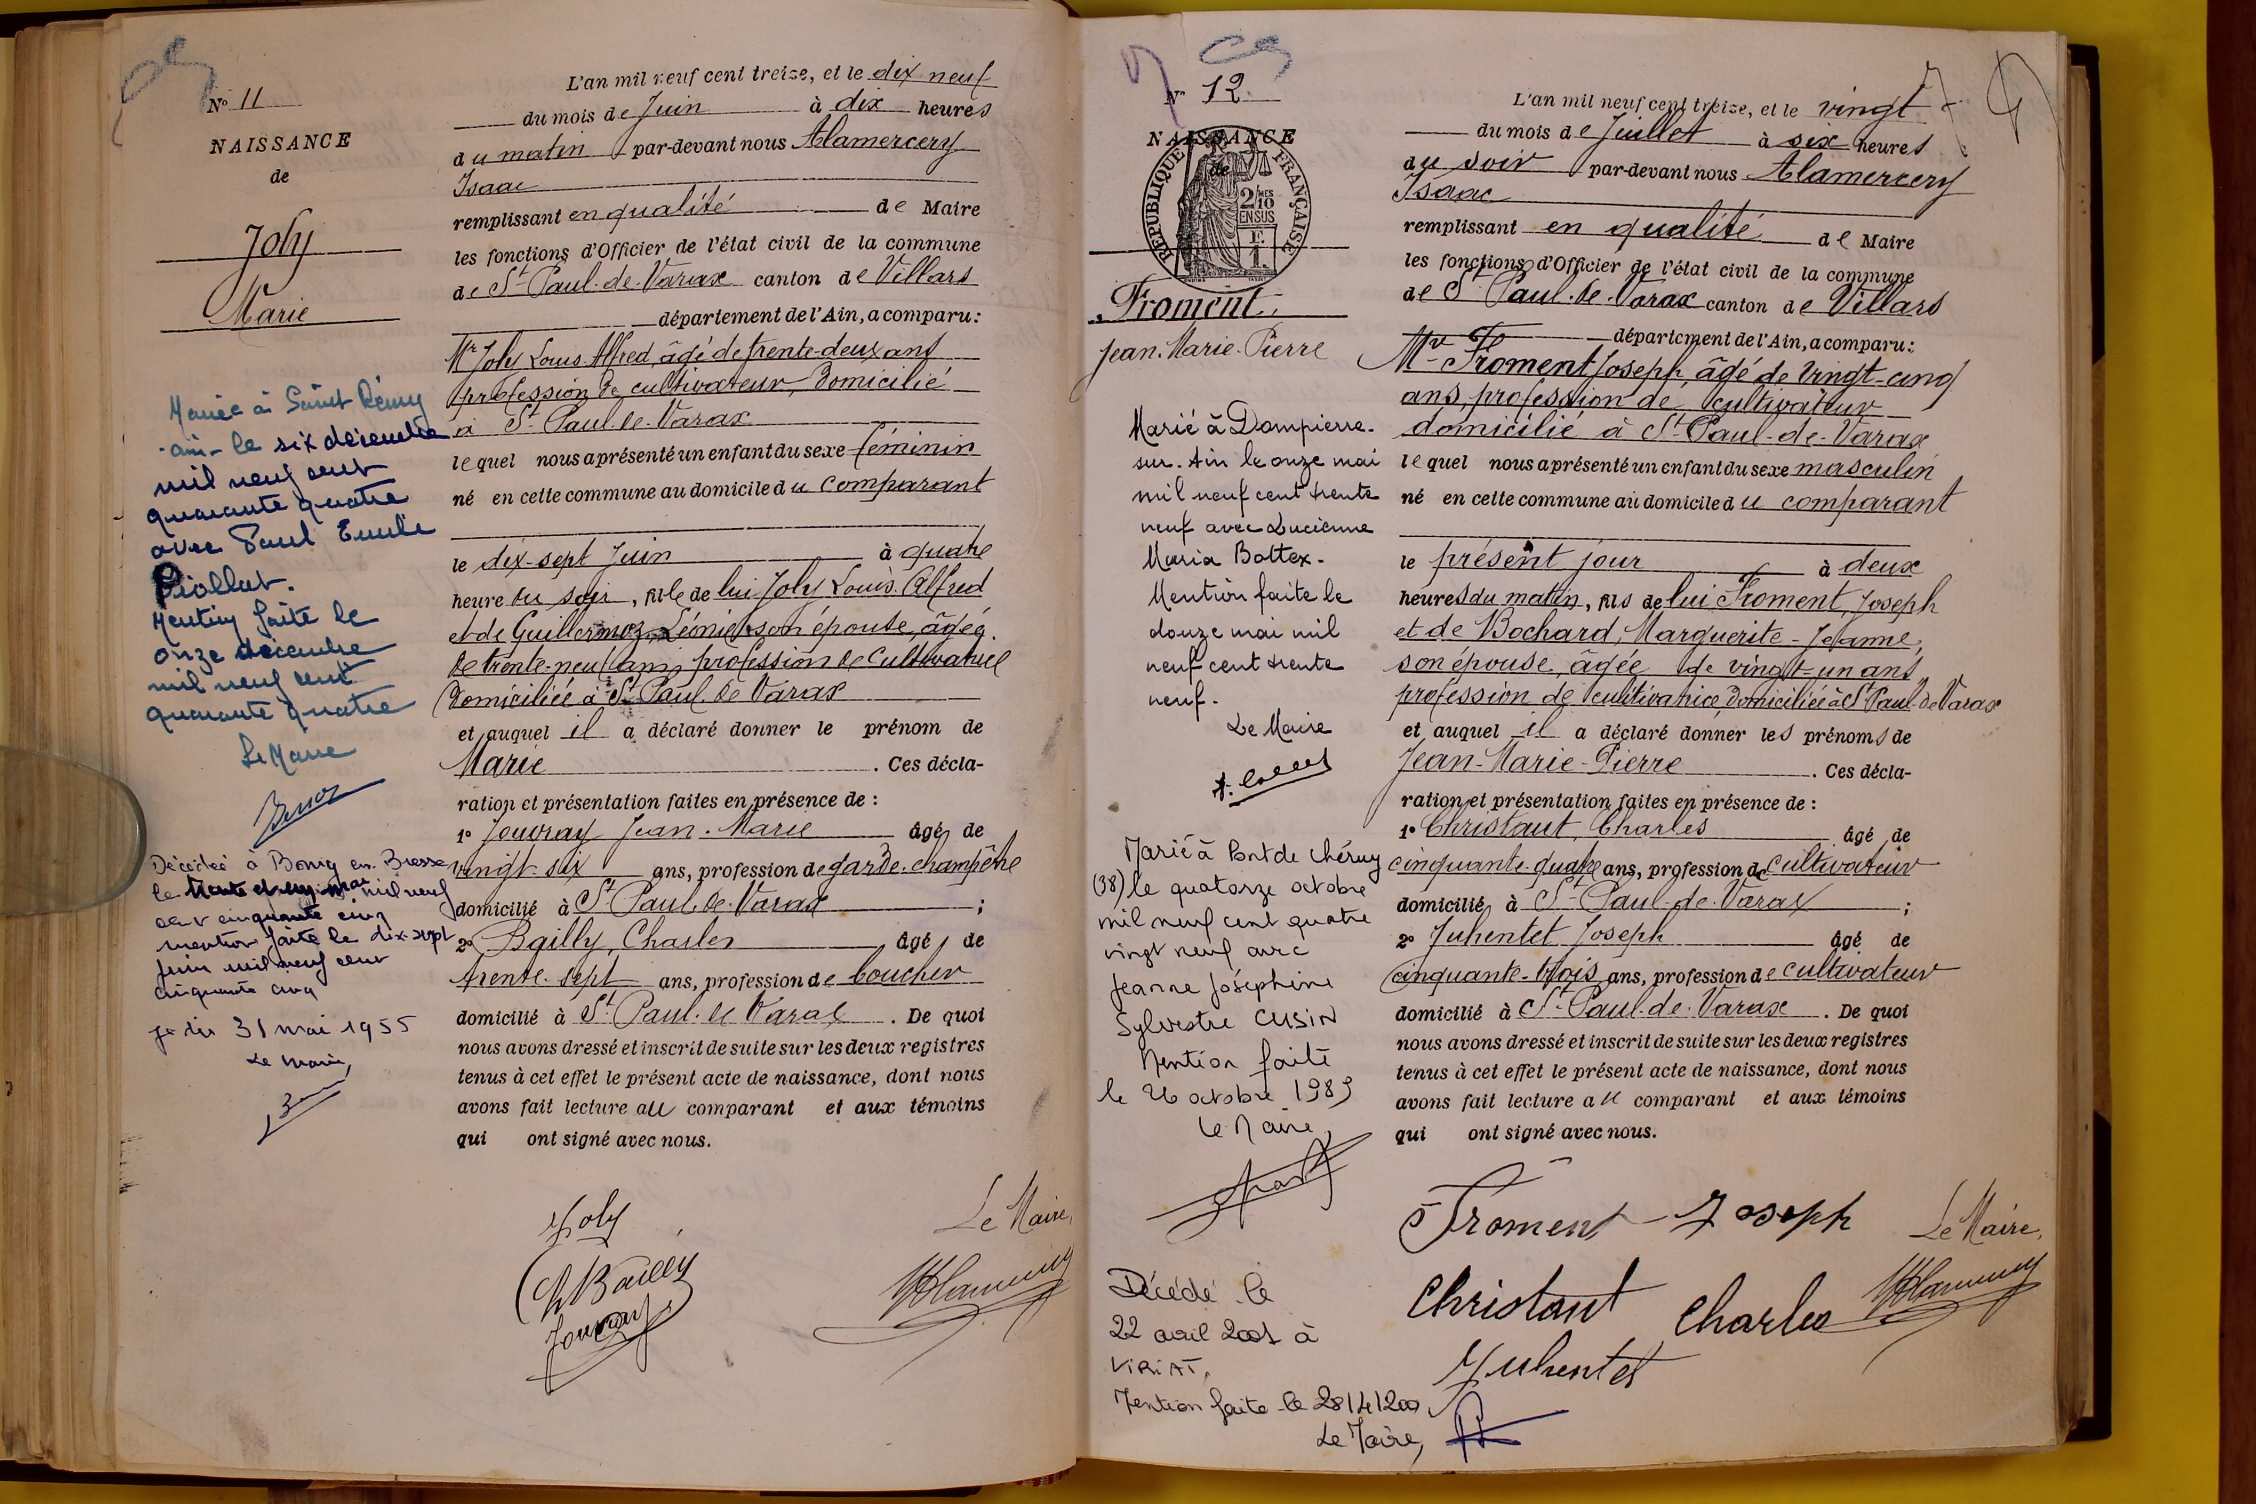 N° 11
NAISSANCE
de
Joly
Marie
Mariée à Saint Rémy
-ain- le six décembre
mil neuf cent
quarante quatre
avec Paul Emile
Piollat.
Mention faite le
onze décembre
mil neuf cent
quarante quatre
Le Maire
Décédée à Bourg en Bresse
le trente et un mai mil neuf
cent cinquante cinq
mention faite le dix-sept
juin mil neuf cent
cinquante cinq
je dis 31 mai 1955
Le Maire,
L'an mil neuf cent treize, et le dix neuf
du mois de Juin à dix heures
du matin par-devant nous Alamercery
Isaac
remplissant en qualité de Maire
les fonctions d'Officier de l'état civil de la commune
de St Paul-de-Varax canton de Villars
département de l'Ain, a comparu:
Mr Joly Louis Alfred, âgé de trente-deux ans
profession de cultivateur, domicilié
à St Paul-de-Varax
lequel nous a présenté un enfant du sexe féminin
né en cette commune au domicile du comparant
le dix-sept Juin à quatre
heure du soir, fille de lui Joly Louis Alfred
et de Guillermoz, Léonie son épouse, âgée
de trente-neuf ans, profession de cultivatrice
domiciliée à St Paul-de-Varax
et auquel il a déclaré donner le prénom de
Marie. Ces décla-
ration et présentation faites en présence de :
1° Jouvray Jean-Marie âgé de
vingt-six ans, profession de garde-champêtre
domicilié à St Paul-de-Varax ;
2° Bailly, Charles âgé de
trente-sept ans, profession de boucher
domicilié à St Paul-de-Varax. De quoi
nous avons dressé et inscrit de suite sur les deux registres
tenus à cet effet le présent acte de naissance, dont nous
avons fait lecture au comparant et aux témoins
qui ont signé avec nous.
Joly
Le Maire,
Ch Bailly
Jouvray
N° 12
NAISSANCE
de
RÉPUBLIQUE FRANÇAISE
2/10 MES
EN SUS
F.
1.
Froment
Jean-Marie-Pierre
Marié à Dompierre-
sur-Ain le onze mai
mil neuf cent trente
neuf avec Lucienne
Maria Bottex-
Mention faite le
douze mai mil
neuf cent trente
neuf.
Le Maire
Marié à Pont de Chéruy
(38) le quatorze octobre
mil neuf cent quatre
vingt neuf avec
Jeanne Joséphine
Sylvestre CUSIN
Mention faite
le 26 octobre 1989
Le Maire,
Décédé le
22 avril 2001 à
VIRIAT,
Mention faite le 28/4/200
Le Maire,
L'an mil neuf cent treize, et le vingt
du mois de Juillet à six heures
du soir par-devant nous Alamercery
Isaac
remplissant en qualité de Maire
les fonctions d'Officier de l'état civil de la commune
de St Paul-de-Varax canton de Villars
département de l'Ain, a comparu:
Mr Froment Joseph, âgé de vingt-cinq
ans, profession de cultivateur
domicilié à St Paul-de-Varax
lequel nous a présenté un enfant du sexe masculin
né en cette commune au domicile du comparant
le présent jour à deux
heures du matin, fils de lui Froment, Joseph
et de Bochard, Marguerite-Jeanne,
son épouse, âgée de vingt-un ans,
profession de cultivatrice, domiciliée à St Paul-de-Varax
et auquel il a déclaré donner les prénoms de
Jean-Marie-Pierre. Ces décla-
ration et présentation faites en présence de :
1° Christaut, Charles âgé de
cinquante-quatre ans, profession de cultivateur
domicilié à St Paul-de-Varax ;
2° Juhentet Joseph âgé de
cinquante-trois ans, profession de cultivateur
domicilié à St Paul-de-Varax. De quoi
nous avons dressé et inscrit de suite sur les deux registres
tenus à cet effet le présent acte de naissance, dont nous
avons fait lecture au comparant et aux témoins
qui ont signé avec nous.
Froment Joseph
Le Maire,
Christaut Charles
Juhentet